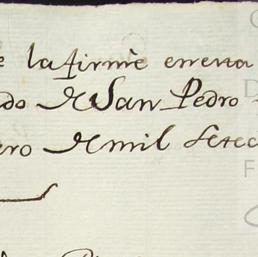 e la firme en esta
do de San Pedro
ero de mil setec